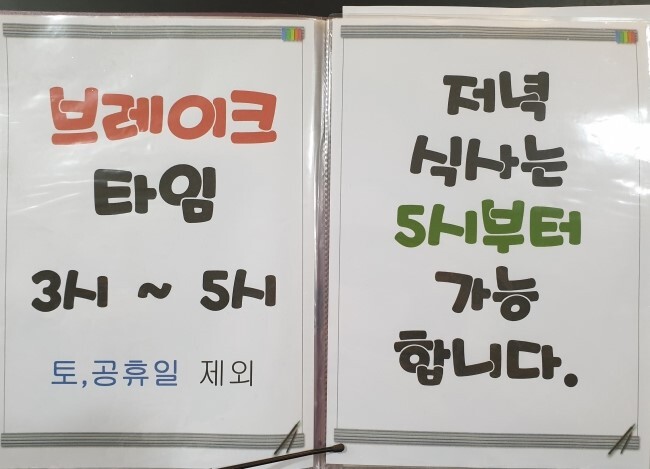 브레이크
타임
3시 ~ 5시
토,공휴일 제외
저녁
식사는
5시부터
가능
합니다.